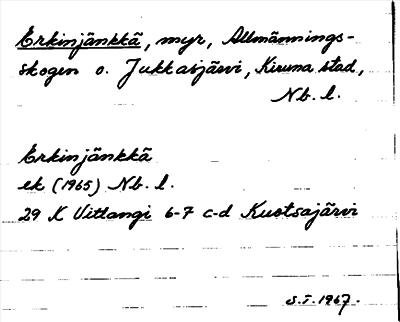 Erkinjänkkä, myr, Allmännings-
skogen o. Jukkasjärvi, Kiruna stad,
Nb. l.
Erkinjänkkä
ek (1965) Nb. l.
29 K Vittangi 6-7 c-d Kuotsajärvi
S.I. 1967.